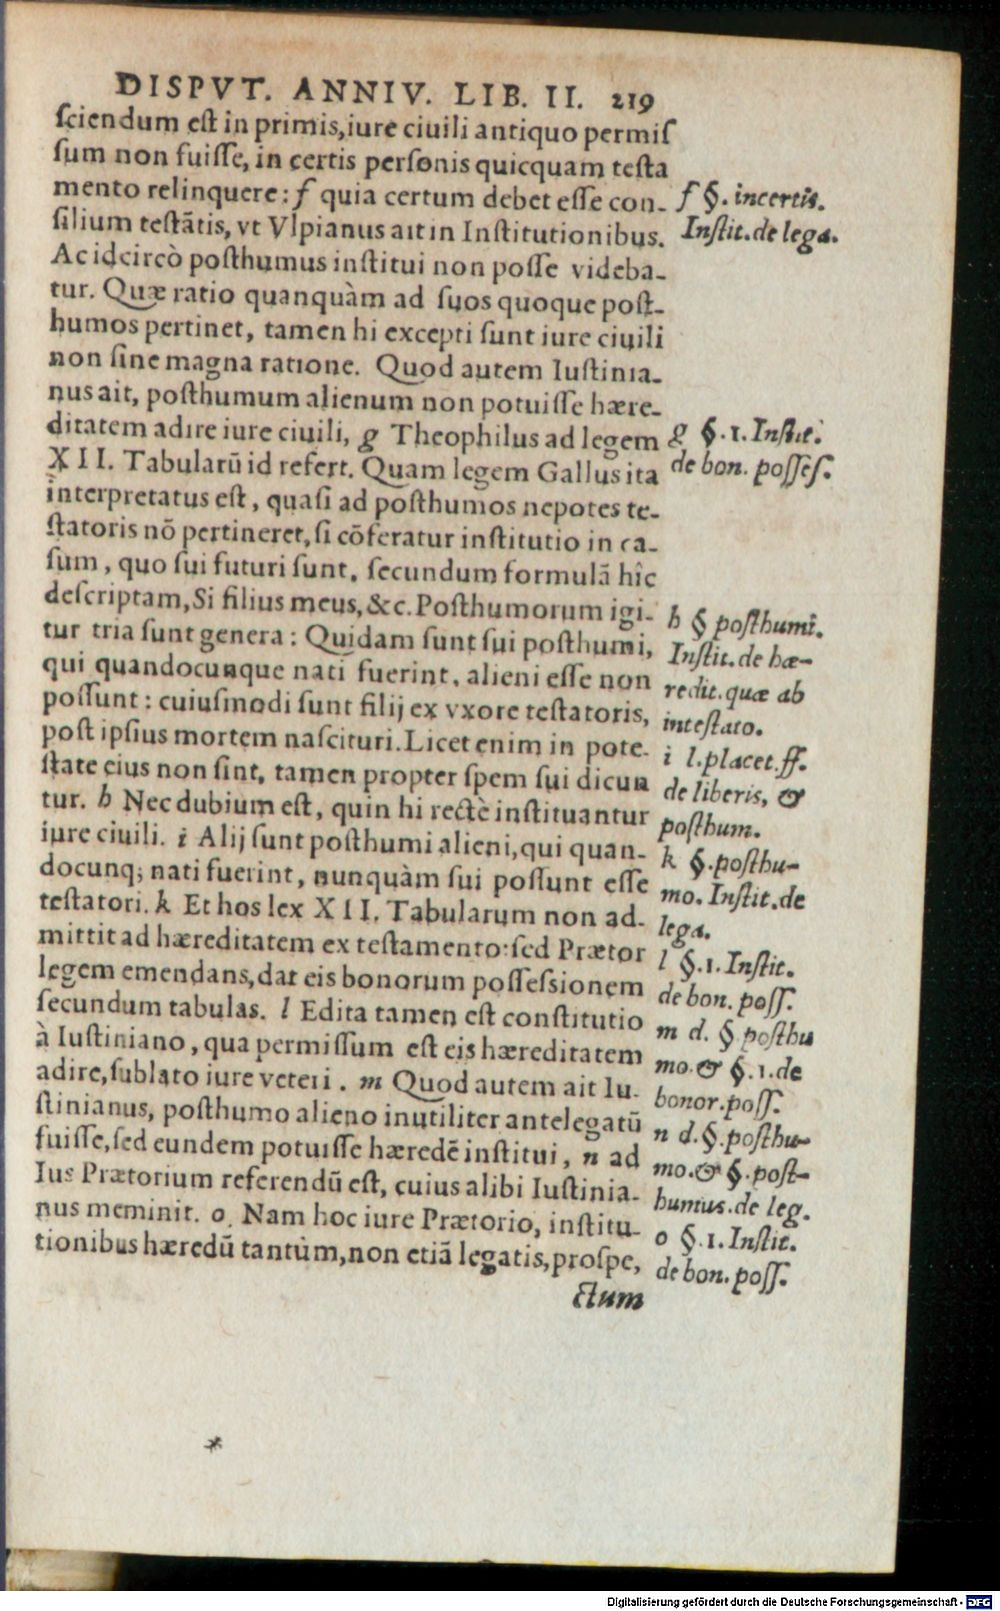 DISPVT. ANNIV. LIB. II. 219
sciendum est in primis, iure ciuili antiquo permis
sum non fuisse, in certis personis quicquam testa
mento relinquere: f quia certum debet esse con-
silium testātis, vt Vlpianus ait in Institutionibus.
Ac idcircò posthumus institui non posse videba-
tur. Quæ ratio quanquàm ad suos quoque post-
humos pertinet, tamen hi excepti sunt iure ciuili
non sine magna ratione. Quod autem Iustinia-
nus ait, posthumum alienum non potuisse hære-
ditatem adire iure ciuili, g Theophilus ad legem
XII. Tabularū id refert. Quam legem Gallus ita
interpretatus est, quasi ad posthumos nepotes te-
statoris nō pertineret, si cōferatur institutio in ca-
sum, quo sui futuri sunt, secundum formulā hîc
descriptam, Si filius meus, &c. Posthumorum igi-
tur tria sunt genera: Quidam sunt sui posthumi,
qui quandocunque nati fuerint, alieni esse non
possunt: cuiusmodi sunt filij ex vxore testatoris,
post ipsius mortem nascituri. Licet enim in pote-
state eius non sint, tamen propter spem sui dicun
tur. h Nec dubium est, quin hi rectè instituantur
iure ciuili. i Alij sunt posthumi alieni, qui quan-
docunq; nati fuerint, nunquàm sui possunt esse
testatori. k Et hos lex XII. Tabularum non ad-
mittit ad hæreditatem ex testamento: sed Prætor
legem emendans, dat eis bonorum possessionem
secundum tabulas. l Edita tamen est constitutio
à Iustiniano, qua permissum est eis hæreditatem
adire, sublato iure veteri. m Quod autem ait Iu-
stinianus, posthumo alieno inutiliter antelegatū
fuisse, sed eundem potuisse hæredē institui, n ad
Ius Prætorium referendū est, cuius alibi Iustinia-
nus meminit. o Nam hoc iure Prætorio, institu-
tionibus hæredū tantùm, non etiā legatis, prospe,
ctum
f §. incertis.
Instit. de lega.
g §. 1. Instit.
de bon. posses.
h § posthumi.
Instit. de hæ-
redit. quæ ab
intestato.
i l. placet. ff.
de liberis, &
posthum.
k §. posthu-
mo. Instit. de
lega.
l §. 1. Instit.
de bon. poss.
m d. § posthu
mo. & §. 1. de
bonor. poss.
n d. §. posthu-
mo. & §. post-
humus. de leg.
o §. 1. Instit.
de bon. poss.
*
Digitalisierung gefördert durch die Deutsche Forschungsgemeinschaft - DFG